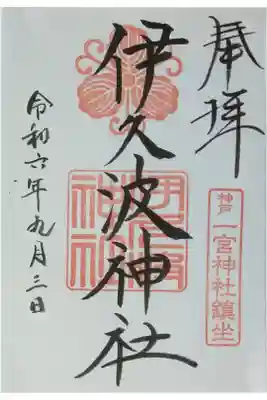 奉拝
神戸 一宮神社鎮坐
伊久波神社
令和六年九月三日